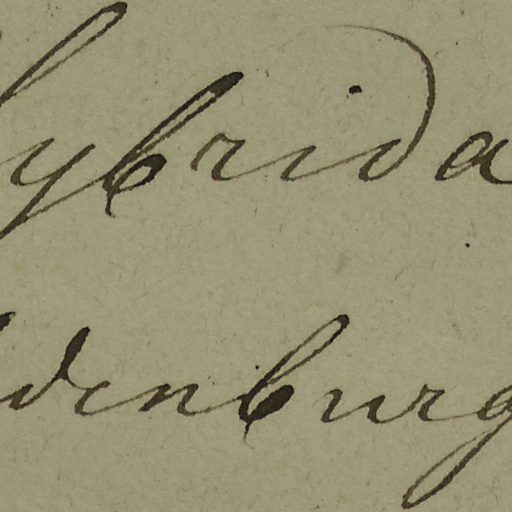 hybrida
denburg